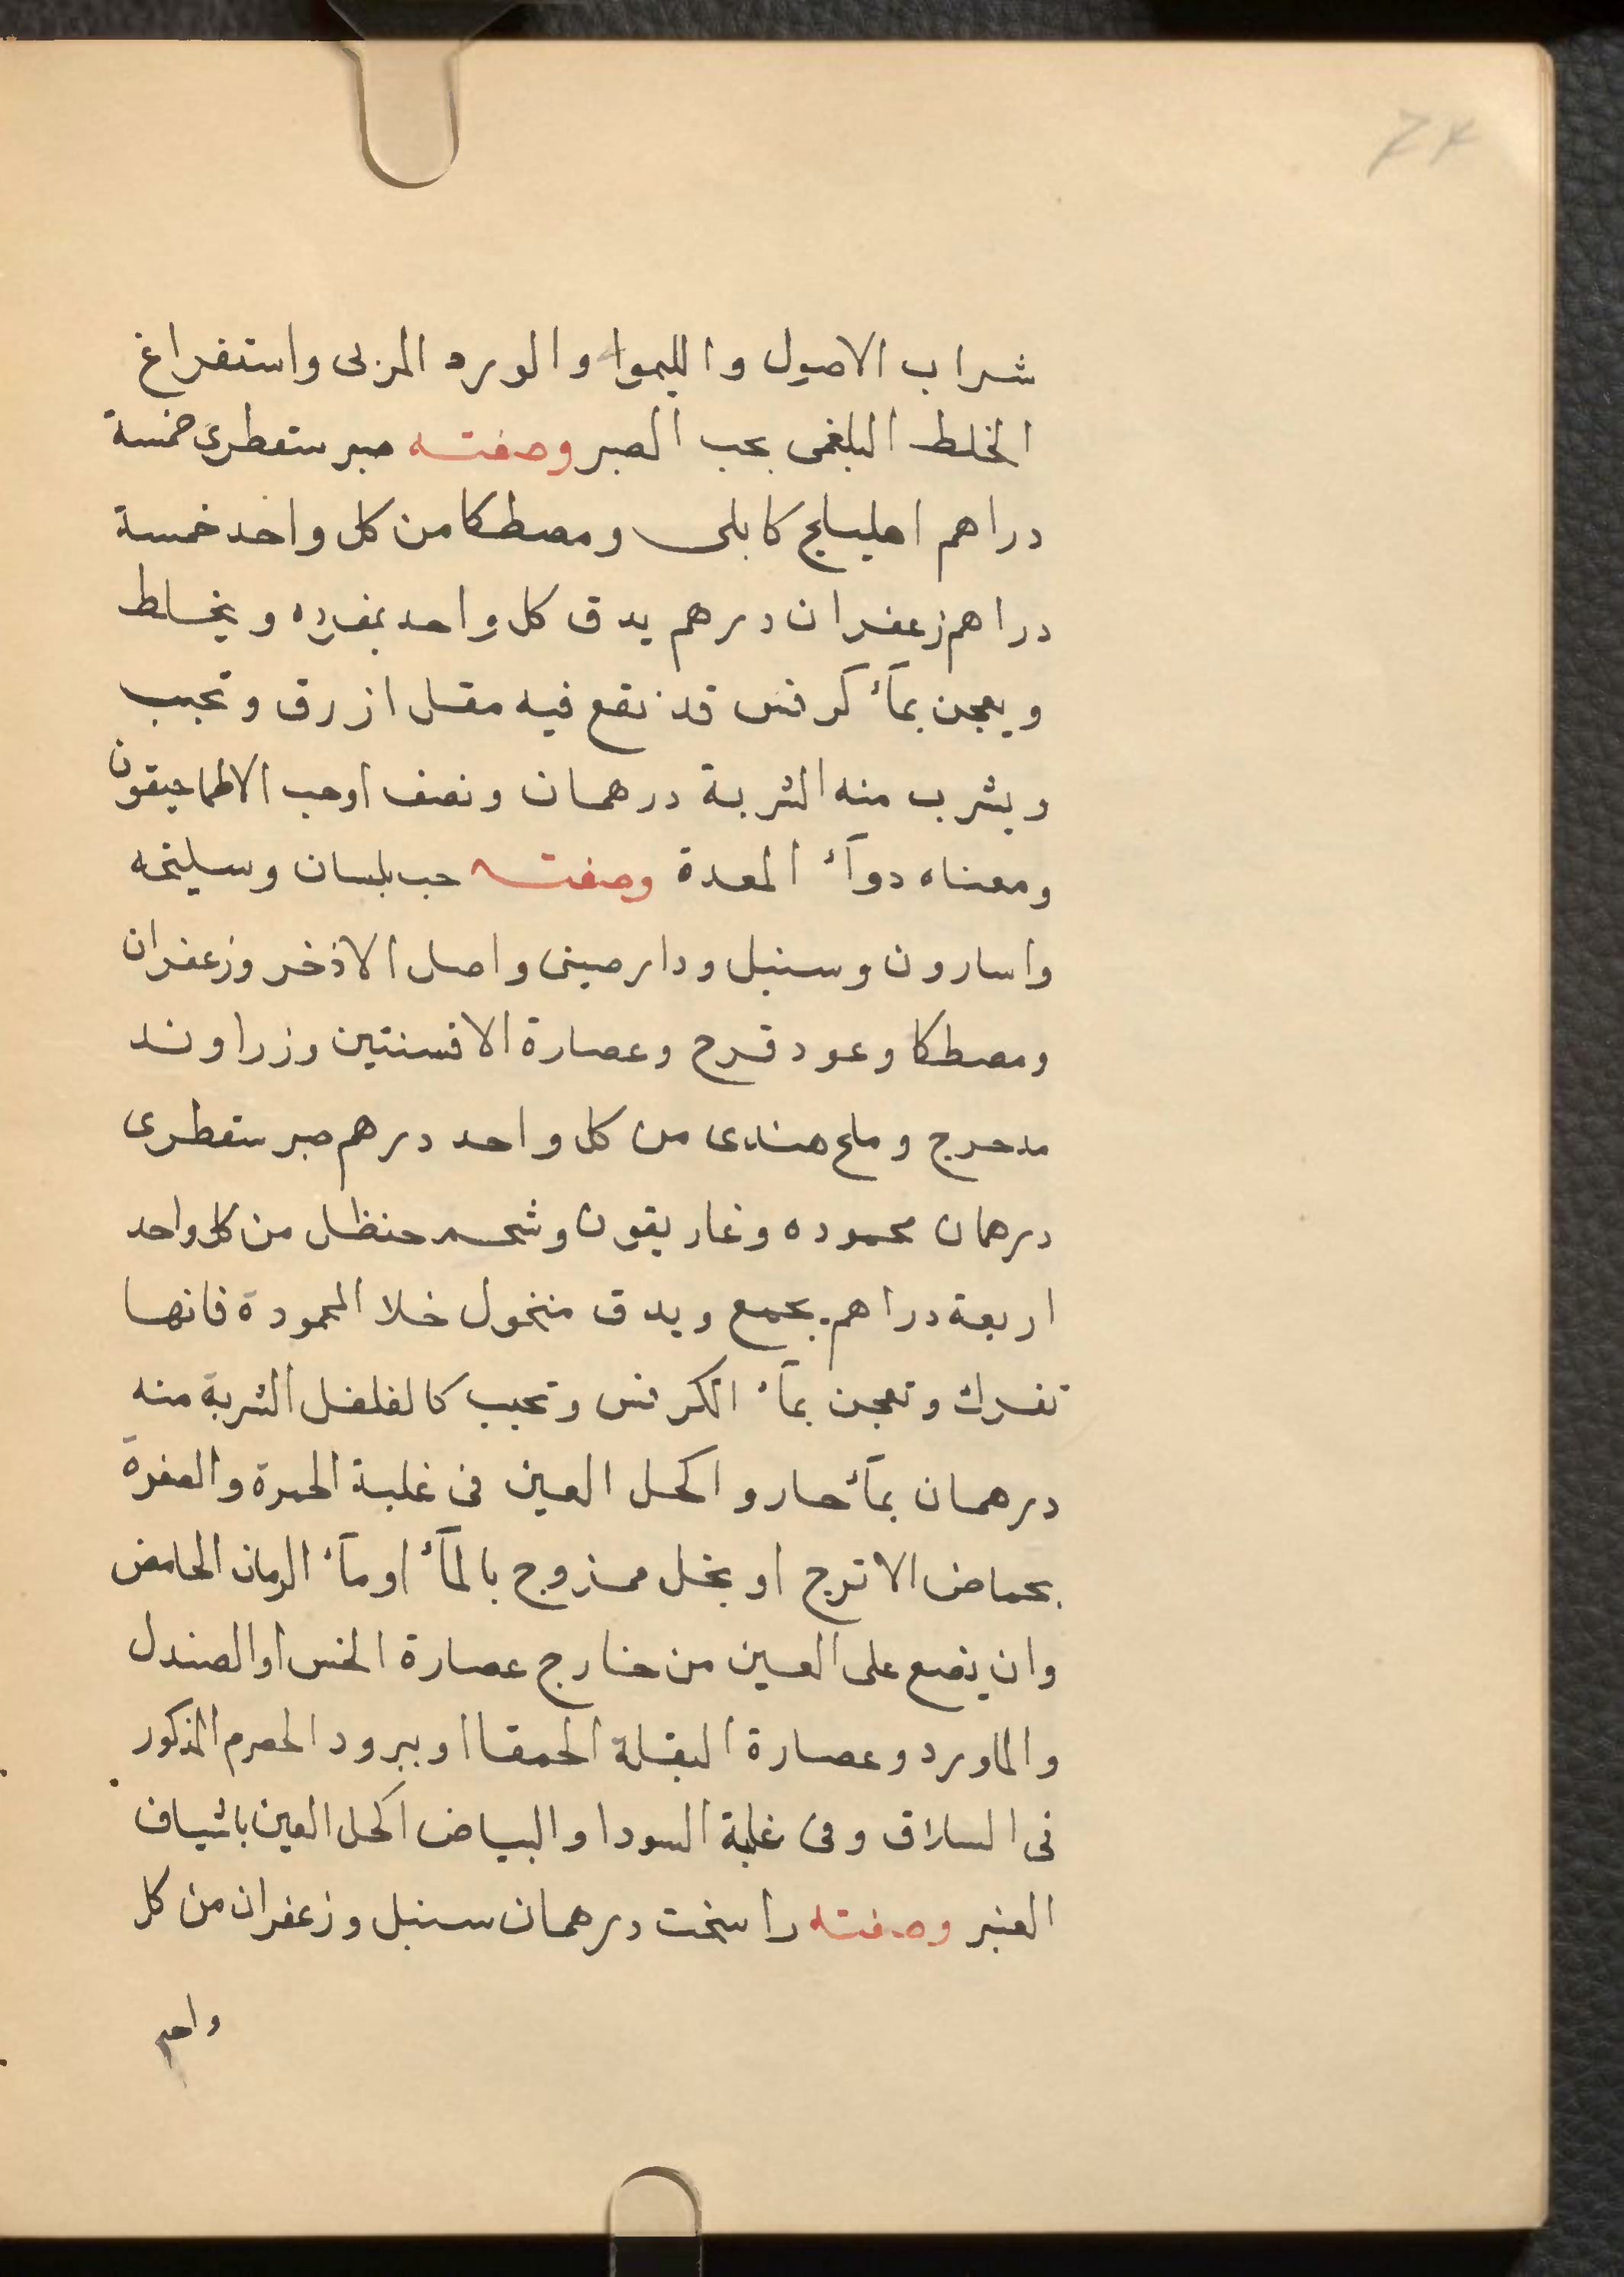 شراب الاصول والليموا والورد المربى واستفراغ
الخلط البلغمى بحب الصبر وصفته صبر سقطرى خمسة
دراهم اهليلج كابلى ومصطكا من كل واحد خمسة
دراهم زعفران درهم يدق كل واحد بمفرده ويخلط
ويعجن بمآء كرفس قد نقع فيه مقل ازرق وتحبب
ويشرب منه الشربة درهمان ونصف اوحب الاطماحيقون
ومعناه دوآء المعدة وصفته حب بلسان وسليخه
واسارون وسنبل ودارصينى واصل الاذخر وزعفران
ومصطكا وعود قرح وعصارة الافسنتين وزراوند
مدحرج وملح هندى من كل واحد درهم صبر سقطرى
درهمان محموده وغاريقون وشحم حنظل من كل واحد
اربعة دراهم يجمع ويدق منخول خلا المحمودة فانها
تفرك وتعجن بمآء الكرفس وتحبب كالفلفل الشربة منه
درهمان بمآء حار واكحل العين فى غلبة الحمرة والصفرة
بحماض الاترج او بخل ممزوج بالمآء اومآء الرمان الحامض
وان يضع على العين من خارج عصارة الخس اوالصندل
والماورد وعصارة البقلة الحمقا اوببرود الحصرم المذكور
فى السلاق وفى غلبة السودا والبياض اكحل العين باشياف
العنبر وصفته راسخت درهمان سنبل وزعفران من كل
واحد